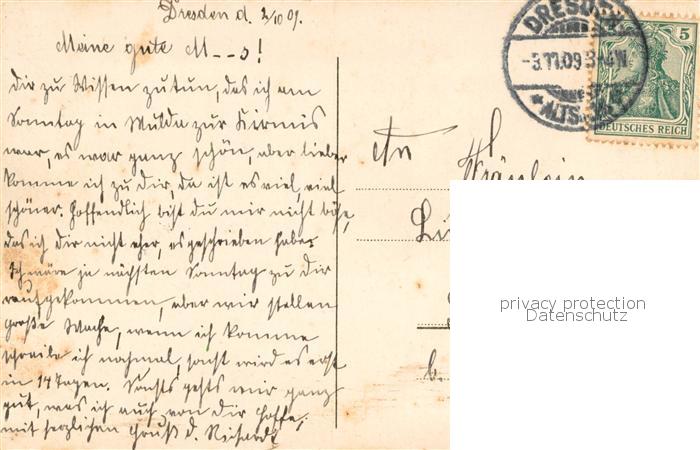 Dresden d. 2/10 09.
Meine gute M---s!
Dir zu Wissen zutun, das ich am
Sonntag in Mulda zur Kirmis
war, es war ganz schön, aber lieber
komme ich zu Dir, da ist es viel, viel
schöner. Hoffendlich bist du mir nicht böse,
das ich dir nicht eher, es geschrieben habe.
Ich wäre ja nächsten Sonntag zu dir
raufgekommen, aber wir stellen
große Wache, wenn ich komme
schreibe ich nochmal, sonst wird es erst
in 14 Tagen. Sonst gehts mir ganz
gut, was ich auch von dir hoffe,
mit herzlichen Gruß d. Richard
DRESDEN
-3.11.09 3-4N
* ALTST.
5
DEUTSCHES REICH
An
Fräulein
privacy protection
Datenschutz
b.